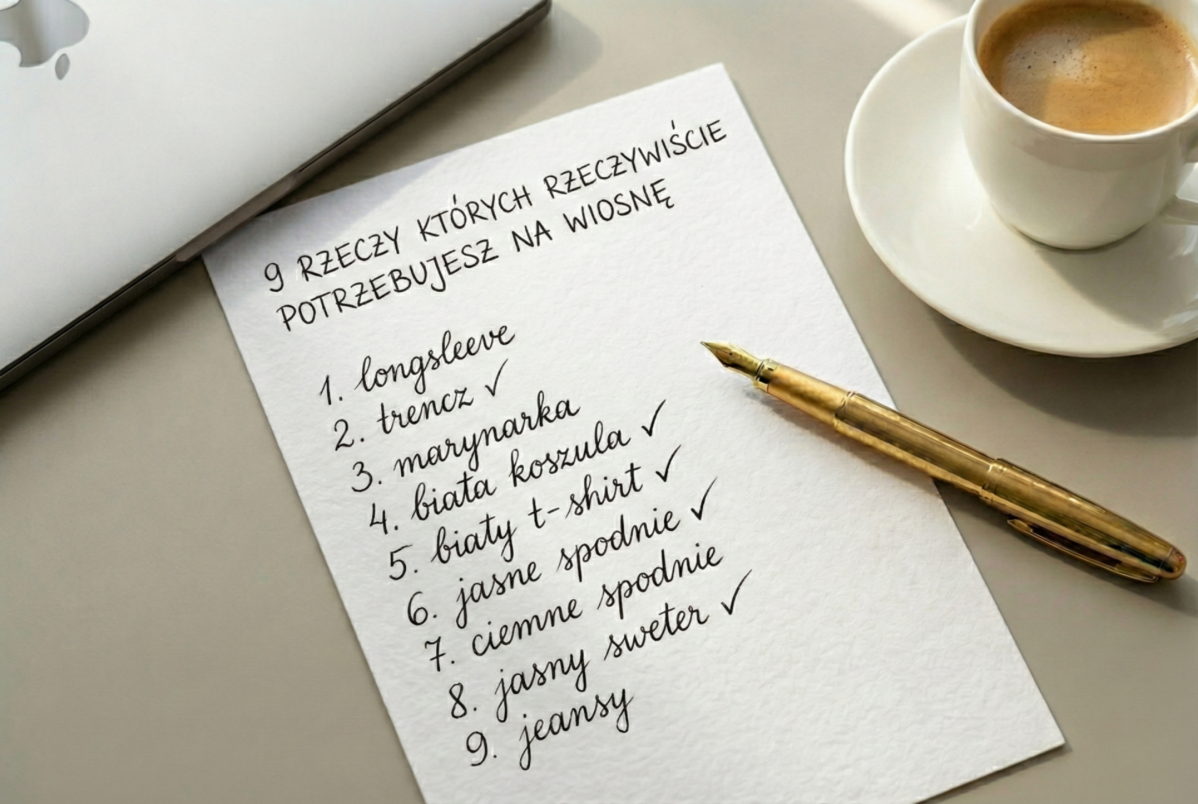 9 RZECZY KTÓRYCH RZECZYWIŚCIE
POTRZEBUJESZ NA WIOSNĘ
1. longsleeve
2. trencz ✓
3. marynarka
4. biała koszula ✓
5. biały t-shirt ✓
6. jasne spodnie ✓
7. ciemne spodnie
8. jasny sweter ✓
9. jeansy